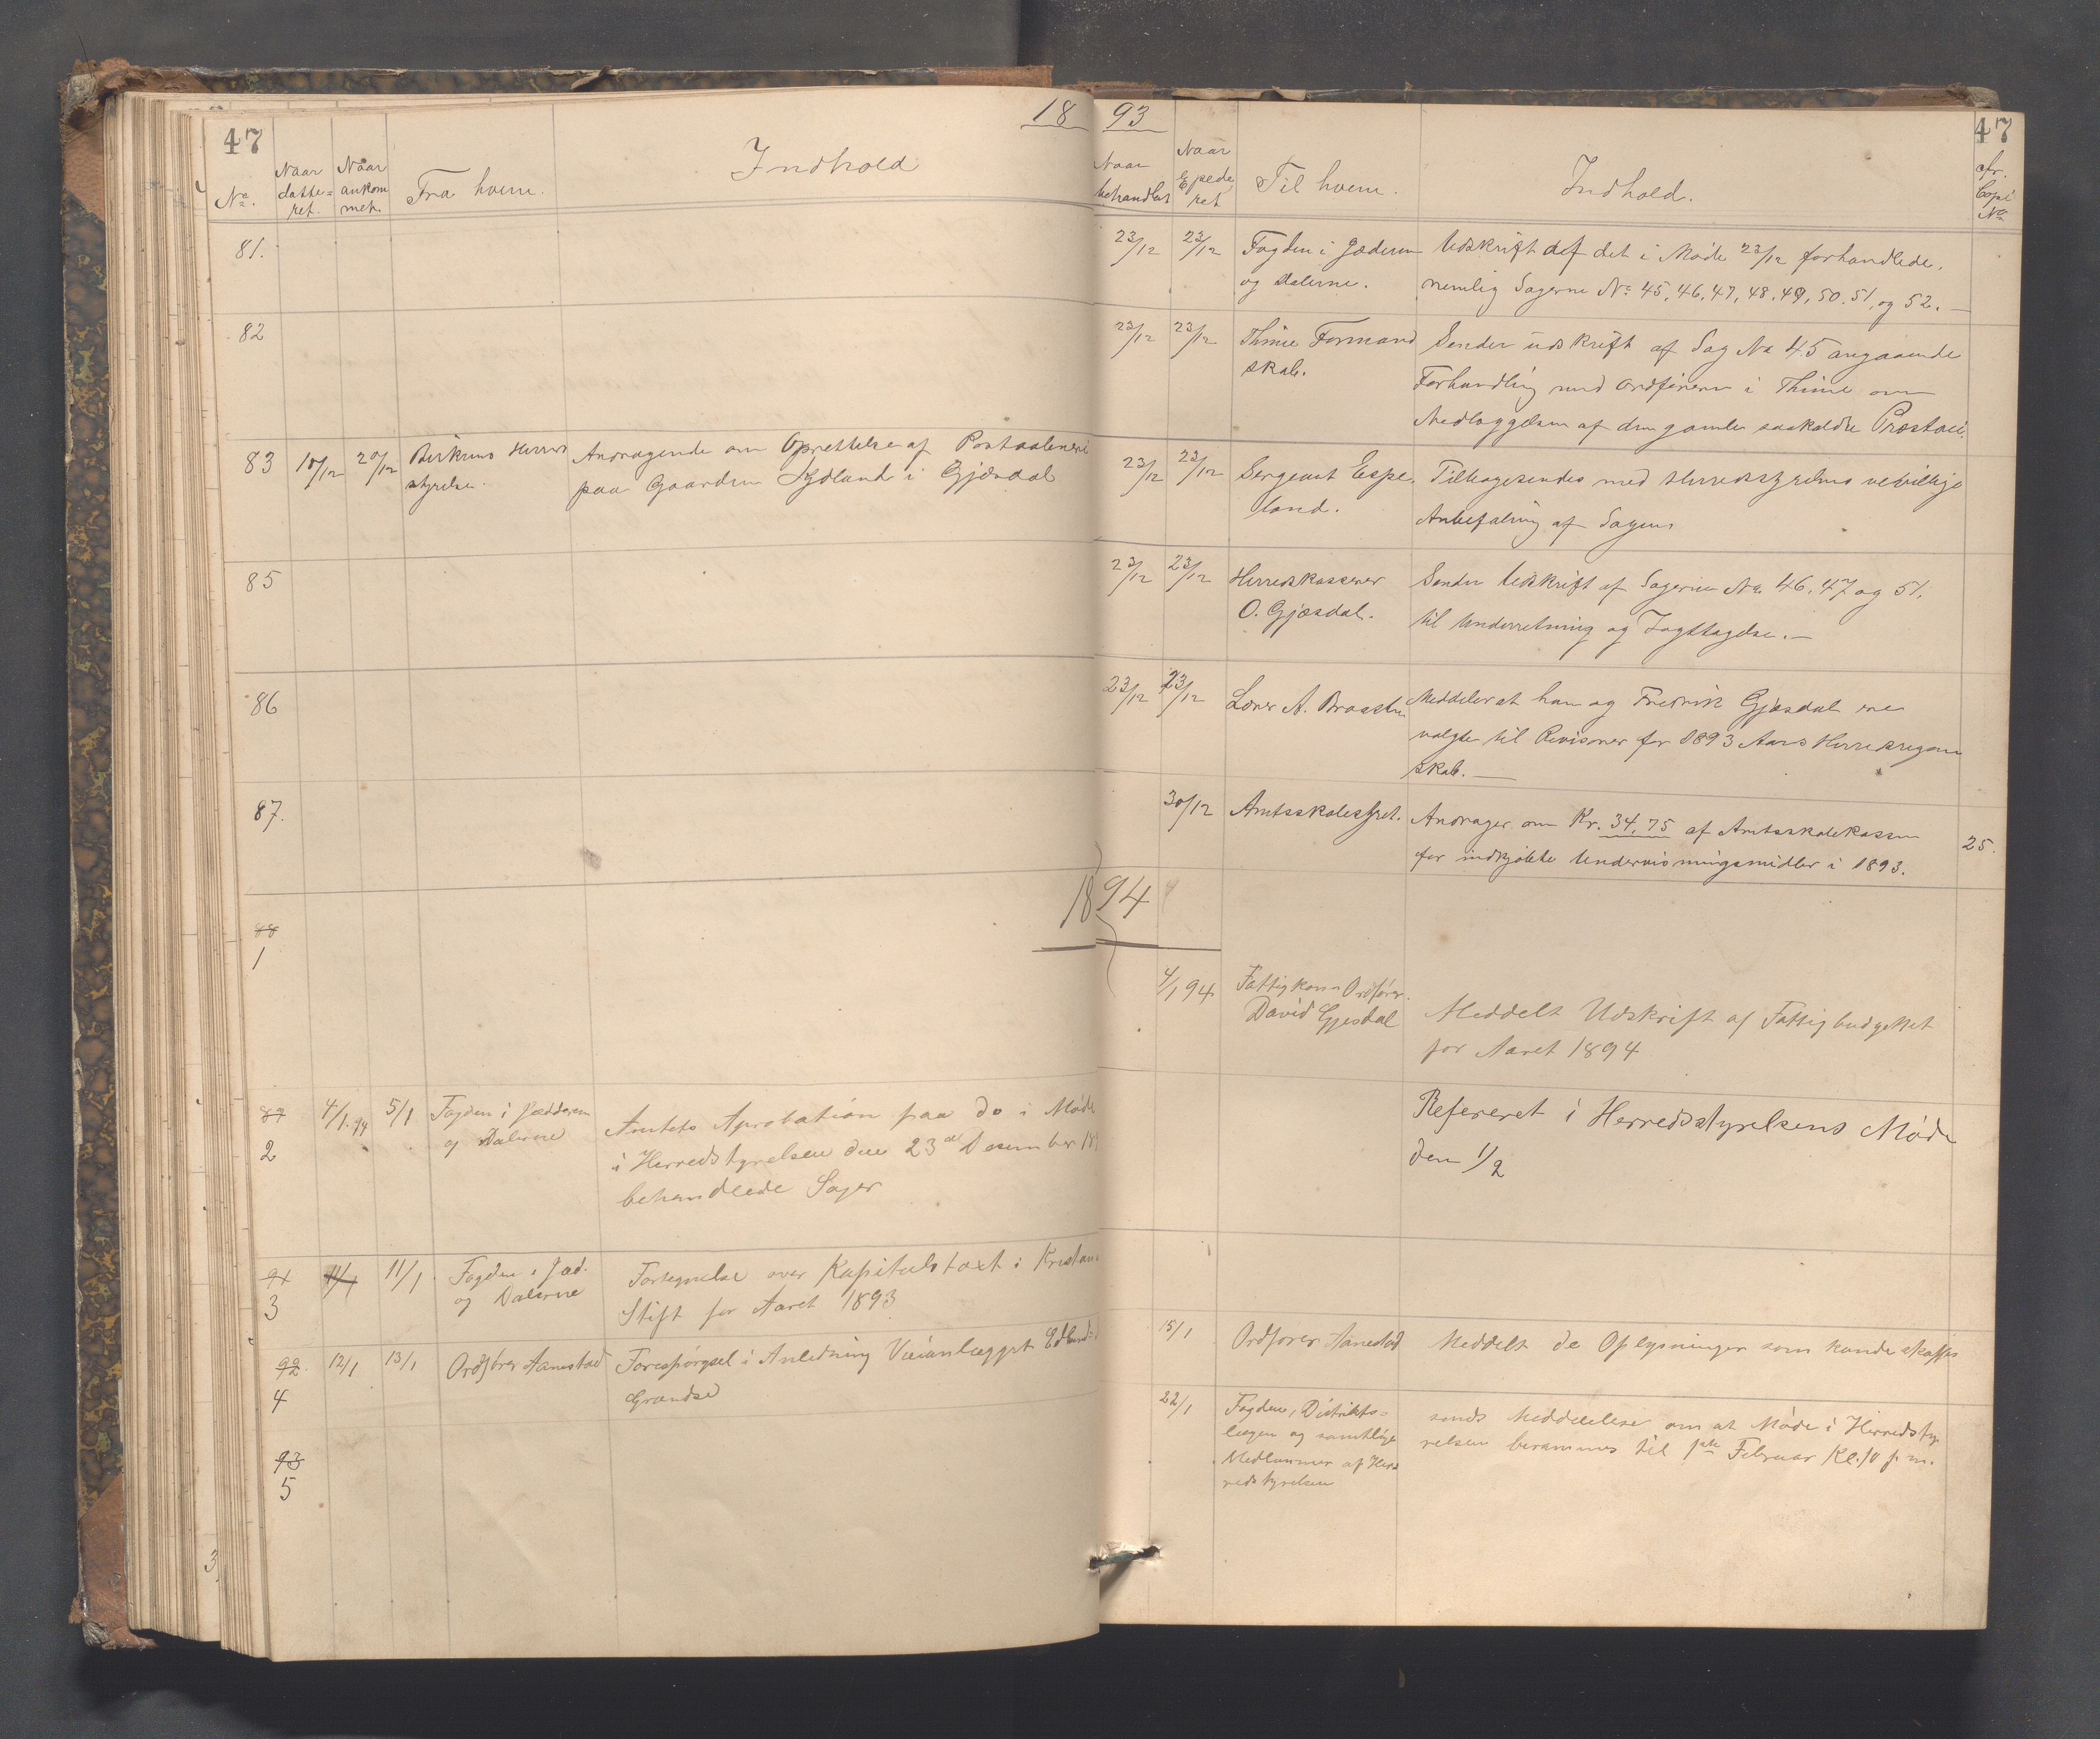 47
18 93
47
No. Naar datteret. Naar ankommet. Fra hvem. Indhold
Naar behandlet Naar Expederet Til hvem. Indhold. cfr. Copi No
81.
23/12 23/12 Fogden i Jæderen Udskrift af det i Møde 23/12 forhandlede,
og Dalerne. nemlig Sagerne No. 45, 46, 47, 48, 49, 50. 51, og 52.—
82
23/12 23/12 Thime Formand Sender udskrift af Sag No 45 angaaende
skab. Forhandling med Ordføreren i Thime om
Nedlæggelsen af den gamle saakaldte
83 18/12 20/12 Herreds Andragende om Oprettelse af Postaabneri
styrelse. paa Gaarden i Gjæsdal
23/12 23/12 Sergeant Espe Tilbagesendes med Herredsstyrelsens velvillige
land. Anbefaling af Sagen
85
23/12 23/12 Herredskasserer Sender Udskrift af Sagerne No. 46, 47 og 51,
O. Gjæsdal. til Underretning og Iagttagelse.—
86
23/12 23/12 Lærer A. Meddeler at han og Fredrik Gjæsdal ere
valgte til Revisorer for 1893 Aars Herredsregn
skab.—
87.
30/12 Amtsskolestyret. Andrager om Kr. 34,75 af Amtsskolekassen
for indkjøbte Undervisningsmidler i 1893. 25.
1894
88
1
4/1 94 Fattigkom Ordfører.
David Gjesdal Meddelt Udskrift af Fattigbudgettet
for Aaret 1894
89 4/1.94 5/1 Fogden i Jædderen Amtets Aprobation paa do i Møde
2 og Dalerne i Herredstyrelsen den 23de Desember 189
behandlede Sager
Refereret i Herredsstyrelsens Møde
den 1/2
91 11/1 11/1 Fogden i Jæd. Fortegnelse over Kapitulstaxt i Kristians
3 og Dalerne Stift for Aaret 1893
92. 12/1 13/1 Ordfører Aanestad Forespørgsel i Anledning Veianlægget Edland
4 Grændse
15/1 Ordfører Aanestad Meddelt de Oplysninger som kunde skaffes
93
5
22/1 Fogden, Distrikts= sendt Meddelelse om at Møde i Herredsty
lægen og samtlige relsen berammes til 1ste Februar Kl. 10 f. m.
Medlemmer af Her
redstyrelsen
3